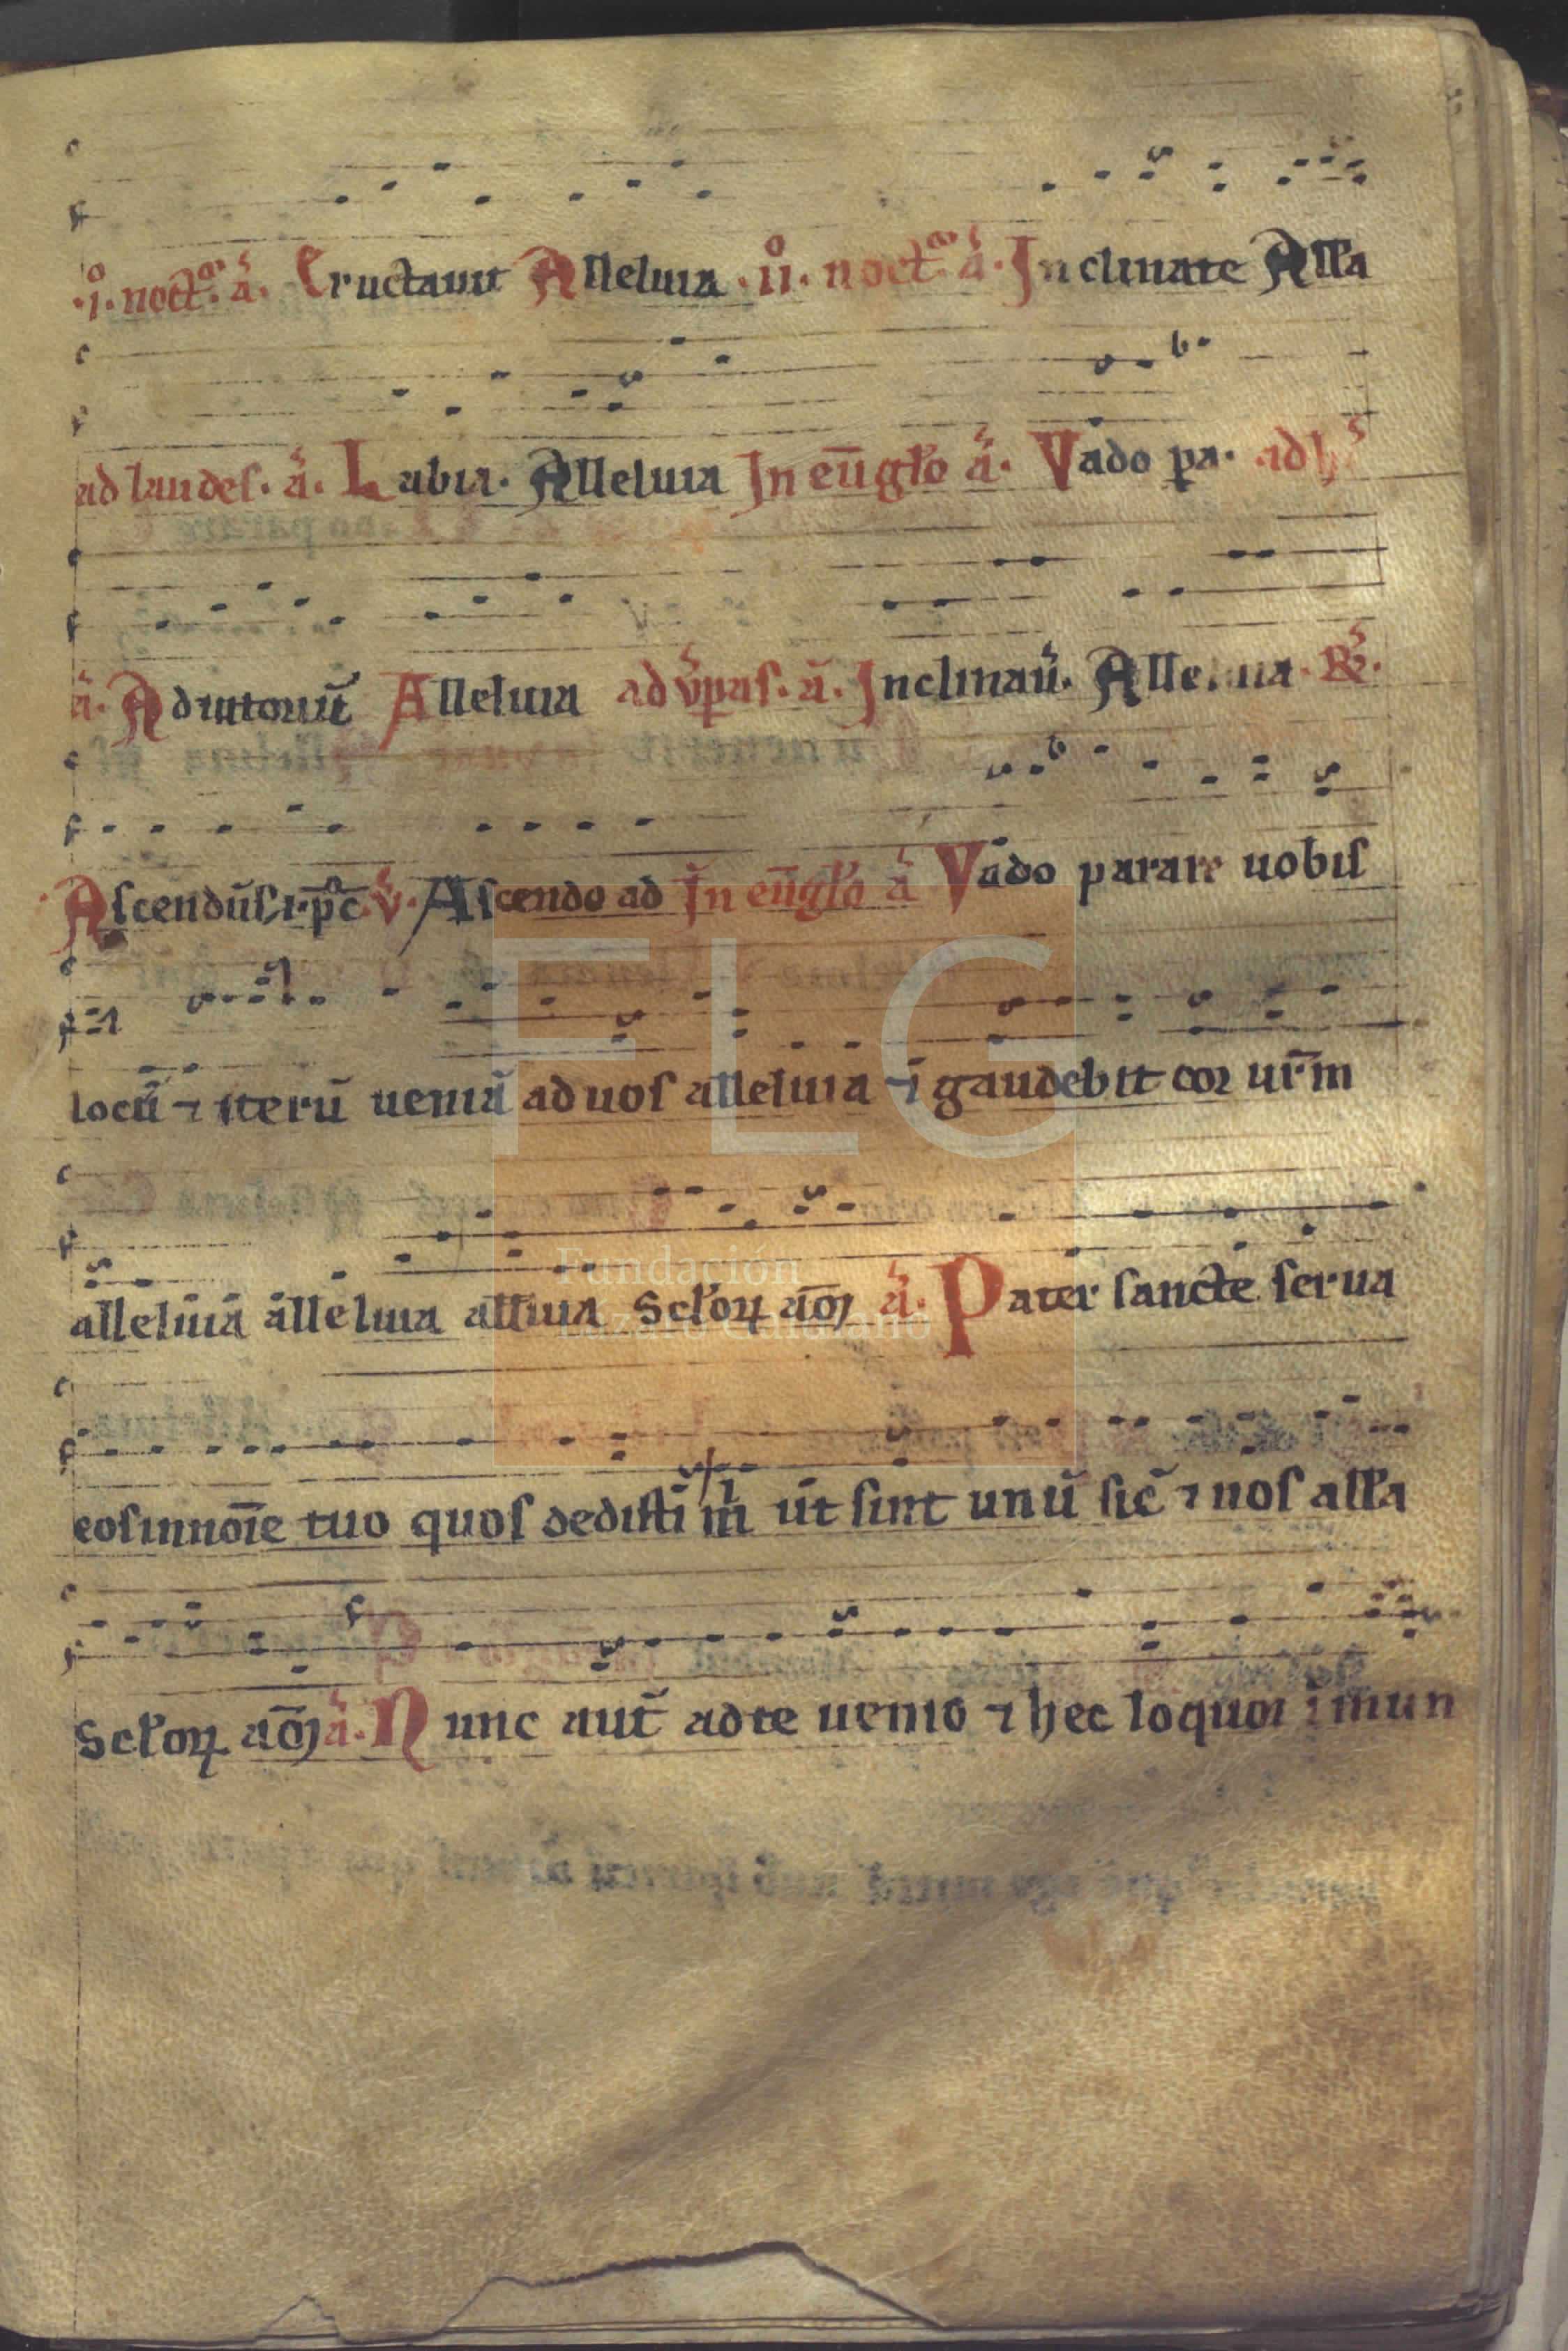 .i.º noct̄. ā. Eructauit Alleluia .ii.º noct̄. ā. Inclinate All'a
ad laudes. ā. Labia. Alleluia In eūgl'o ā. Vado pa. ad
ā. Adiutoriū Alleluia ad ūpas. ā. Inclinaū. Alleluia. R.
Ascendūs. v̄. Ascendo ad In eūgl'o ā Vado parare uobis
locū ⁊ iterū ueniā ad uos alleluia ⁊ gaudebit cor ur̄m
alleluia alleluia all'uia Scl'oꝝ am̄ ā. Pater sancte serua
eos in noīe tuo quos dedisti m̄ ut sint unū sic̄ ⁊ nos all'a
Scl'oꝝ am̄ ā. Nunc aut̄ ad te uenio ⁊ hec loquor ī mun
FLG
Fundación
Lázaro Galdiano